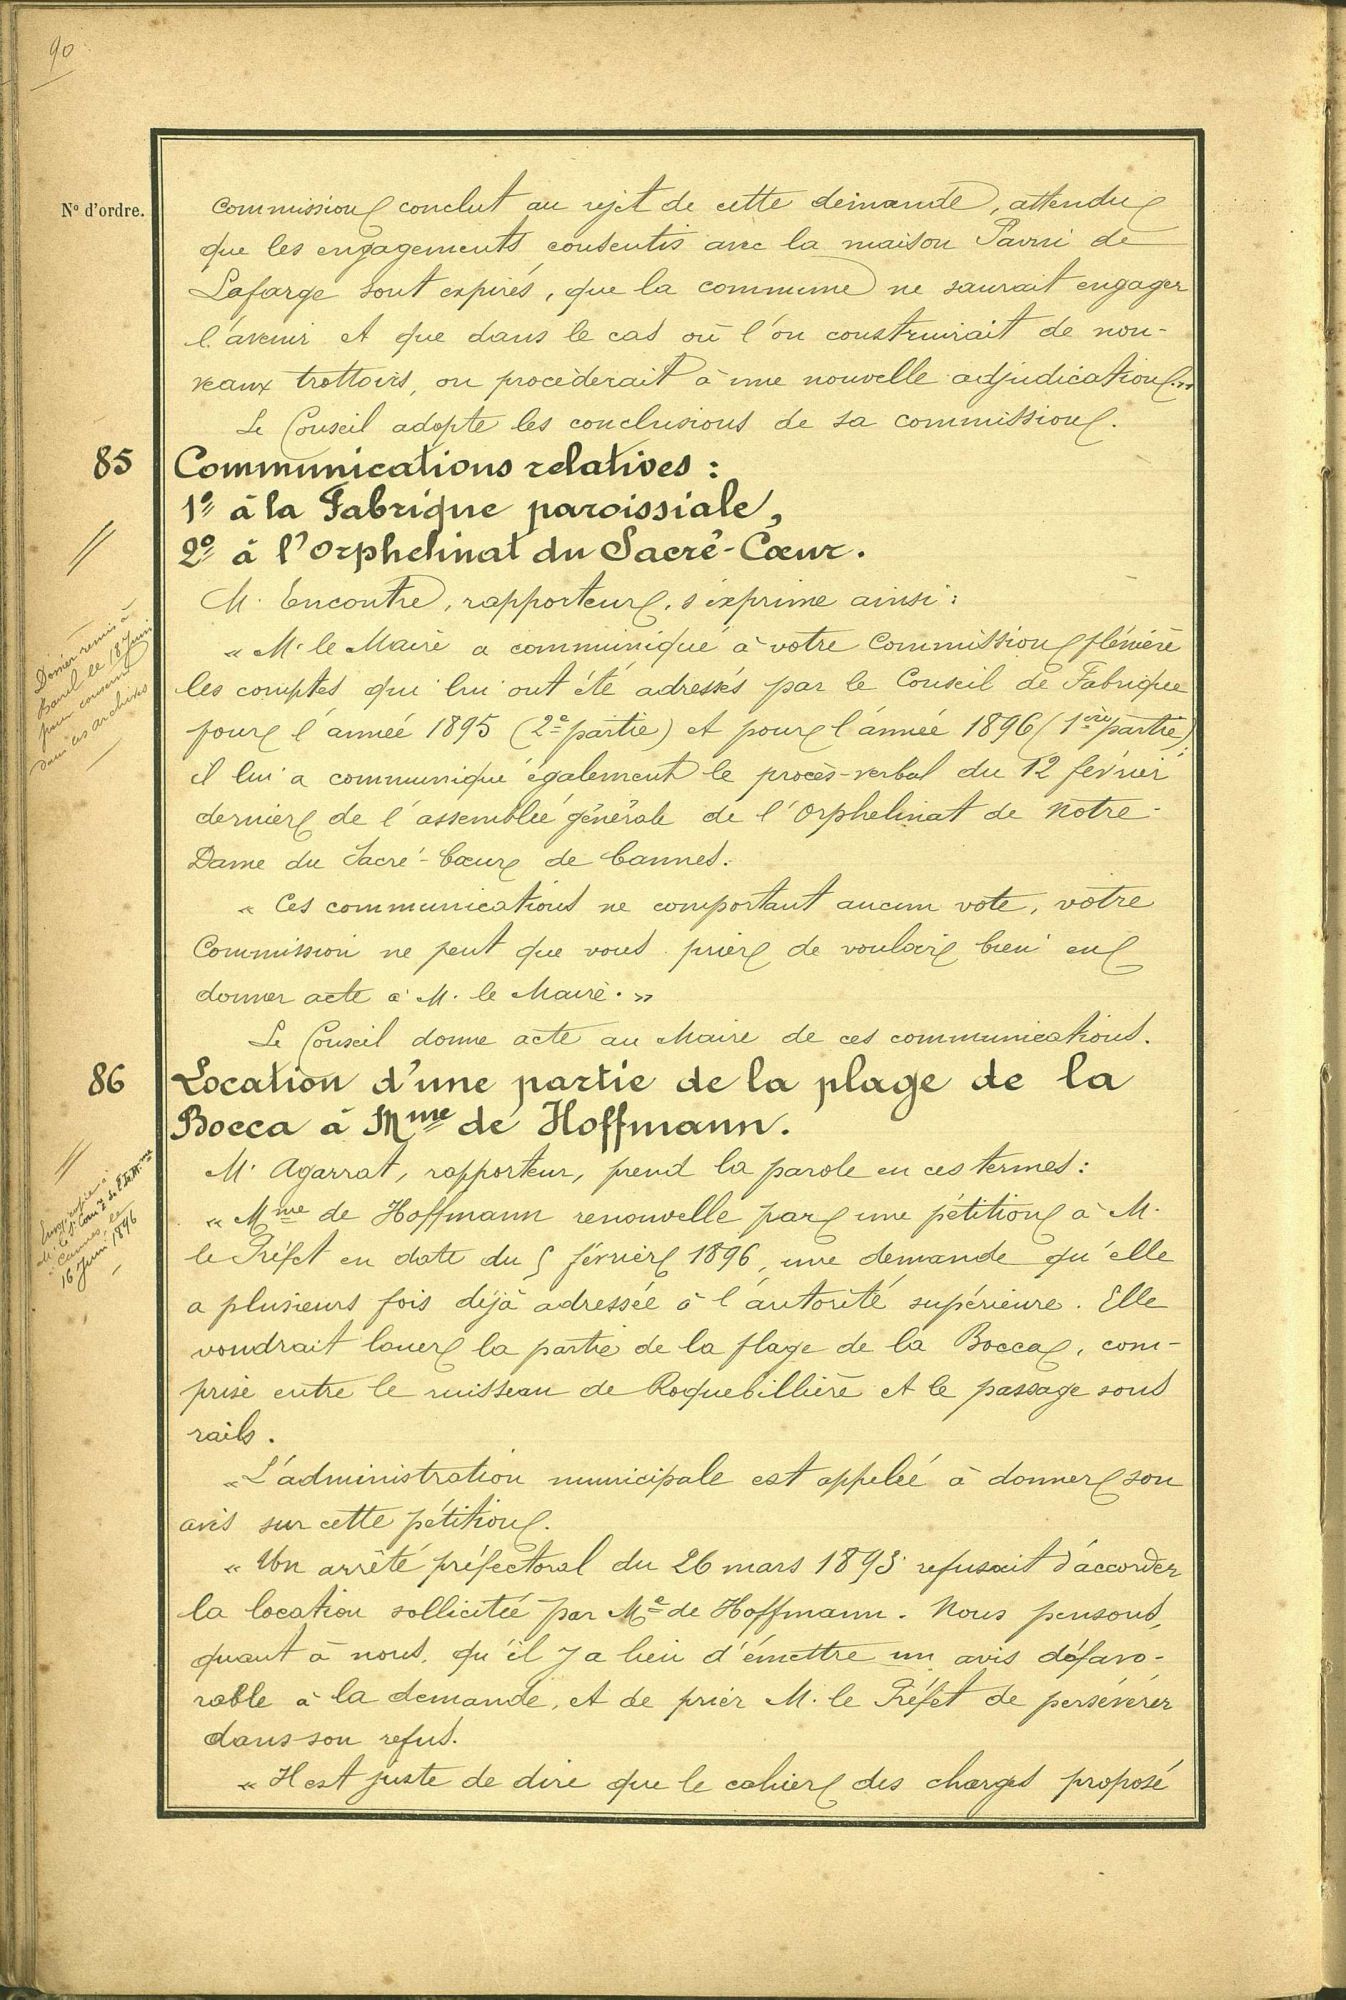 90
N° d'ordre.
commission conclut au rejet de cette demande, attendu
que les engagements consentis avec la maison Pavin de
Lafarge sont expirés, que la commune ne saurait engager
l'avenir et que dans le cas où l'on construirait de nou-
veaux trottoirs, on procèderait à une nouvelle adjudication. »
Le Conseil adopte les conclusions de sa commission.
85
Communications relatives :
1° à la Fabrique paroissiale,
2° à l'Orphelinat du Sacré-Cœur.
M. Encontre, rapporteur, s'exprime ainsi :
« M. le Maire a communiqué à votre Commission plénière
les comptes qui lui ont été adressés par le Conseil de Fabrique
pour l'année 1895 (2e partie) et pour l'année 1896 (1ère partie);
il lui a communiqué également le procès-verbal du 12 février
dernier de l'assemblée générale de l'Orphelinat de Notre-
Dame du Sacré-Cœur de Cannes.
« Ces communications ne comportant aucun vote, votre
Commission ne peut que vous prier de vouloir bien en
donner acte à M. le Maire. »
Le Conseil donne acte au Maire de ces communications.
Dossier remis à
le 18 Juin
pour conserver
dans ses archives
86
Location d'une partie de la plage de la
Bocca à Mme de Hoffmann.
M. Agarrat, rapporteur, prend la parole en ces termes :
« Mme de Hoffmann renouvelle par une pétition à M.
le Préfet en date du 5 février 1896, une demande qu'elle
a plusieurs fois déjà adressée à l'autorité supérieure. Elle
voudrait louer la partie de la plage de la Bocca, com-
prise entre le ruisseau de Roquebillière et le passage sous
rails.
« L'administration municipale est appelée à donner son
avis sur cette pétition.
« Un arrêté préfectoral du 26 mars 1893 refusait d'accorder
la location sollicitée par Me de Hoffmann. Nous pensons,
quant à nous, qu'il y a lieu d'émettre un avis défavo-
rable à la demande, et de prier M. le Préfet de persévérer
dans son refus.
« Il est juste de dire que le cahier des charges proposé
Envoi copie à
Cannes, le
16 Juin 1896